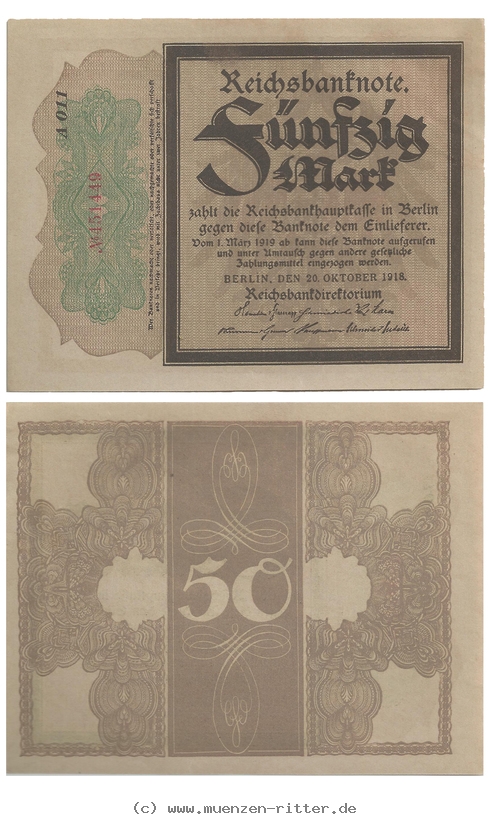 A 011
№451449
Wer Banknoten nachmacht oder verfälscht, oder nachgemachte oder verfälschte sich verschafft
und in Verkehr bringt, wird mit Zuchthaus nicht unter zwei Jahren bestraft.
Reichsbanknote.
Fünfzig
Mark
zahlt die Reichsbankhauptkasse in Berlin
gegen diese Banknote dem Einlieferer.
Vom 1. März 1919 ab kann diese Banknote aufgerufen
und unter Umtausch gegen andere gesetzliche
Zahlungsmittel eingezogen werden.
BERLIN, DEN 20. OKTOBER 1918.
Reichsbankdirektorium
50
(c) www.muenzen-ritter.de